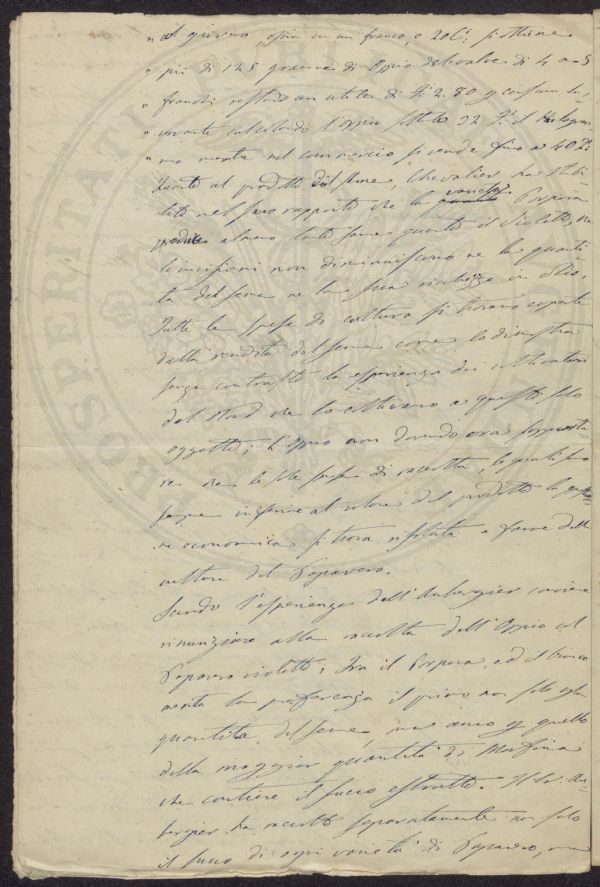 " al giorno, ossia un franco, e 20 C.i si ottiene
" più di 125 gramme di Oppio del valore di 4 a 5
" franchi restando un utile di F.i 2. 80 per ciascun la
" vorante calcolando l'oppio 32 F.i il Kilogram
" mo mentre nel commercio si vende fino a 40 F.i
Quanto al prodotto del seme, Chevalier ha stabi
lito nel suo rapporto che la varietà Porpora
produce almeno tanto seme quanto il violetto, che
le incisioni non diminuiscono ne la quanti
tà del seme ne la sua ricchezza in olio.
Tutte le spese di cultura si trovano coperte
dalla vendita del seme come lo dimostra
senza contrasto la esperienza dei coltivatori
del Nord che lo coltivano a questo solo
oggetto; l'oppio non dovendo ora sopporta
re che le sole spese di raccolta, le quali sono
sempre inferiori al valore del prodotto la
ne economica si trova risoluta a favore della
cultura del Papavero.
Secondo l'esperienza dell'Aubergier conviene
rinunziare alla raccolta dell'Oppio col
Papavero violetto; Fra il Porpora, ed il bianco
merita la preferenza il primo non solo per la
quantità del seme, ma anco per quello
della maggior quantità di Morfina
che contiene il succo estratto. Il Sig. Au
bergier ha raccolto separatamente non solo
il succo di ogni varietà di Papavero, ma
PROSPERITATI